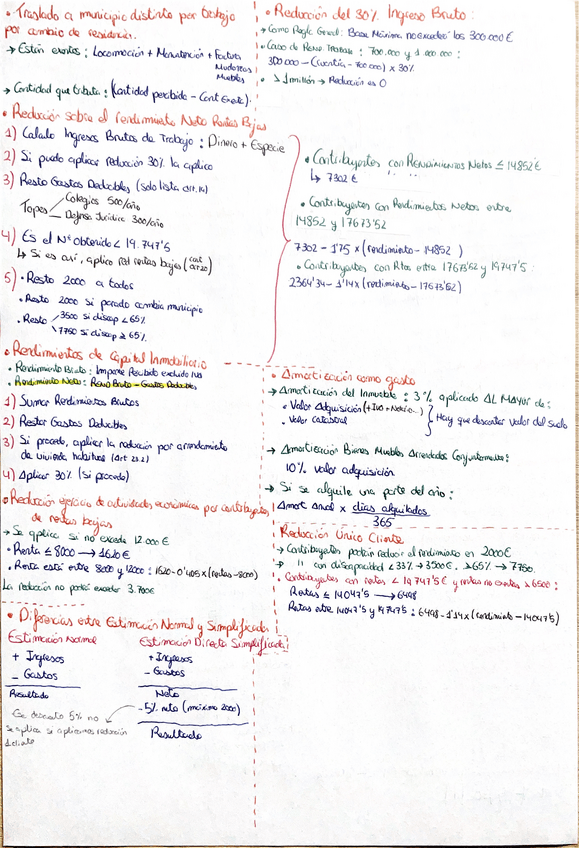 • Traslado a municipio distinto por trabajo
por cambio de residencia.
→ Están exentos: Locomoción + Manutención + Factura
Mudanzas
Muebles
→ Cantidad que tributa: (Cantidad percibida - Cant Exenta).
• Reducción sobre el rendimiento Neto Rentas Bajas
1) Calculo Ingresos Brutos de Trabajo: Dinero + Especie
2) Si puedo aplicar reducción 30% la aplico
3) Resto Gastos Deducibles (solo lista art. 19)
Topes
Colegios 500/año
Defensa Jurídica 300/año
4) Es el Nº obtenido < 19.747'5
↳ Si es así, aplico red rentas bajas (art 20)
5) • Resto 2000 a todos
• Resto 2000 si parado cambia municipio
• Resto
3500 si discap < 65%
7750 si discap ≥ 65%.
• Reducción del 30% Ingreso Bruto:
→ Como Regla General: Base Máxima no exceder los 300.000 €
• Caso de Rdto. Trabajo: 700.000 y 1.000.000:
300.000 - (Cuantía - 700.000) x 30%
• > 1 millón → Reducción es 0
• Contribuyentes con Rendimientos Netos ≤ 14852 €
↳ 7302 €
• Contribuyentes con Rendimientos Netos entre
14852 y 17673'52
7302 - 1'75 x (rendimiento - 14852)
• Contribuyentes con Rtos entre 17673'52 y 19747'5:
2364'34 - 1'14 x (rendimiento - 17673'52)
• Rendimientos de Capital Inmobiliario
• Rendimiento Bruto: Importe Recibido excluido IVA
• Rendimiento Neto: Rdto Bruto - Gastos Deducibles
1) Sumar Rendimientos Brutos
2) Restar Gastos Deducibles
3) Si procede, aplicar la reducción por arrendamiento
de vivienda habitual (Art 23.2)
4) Aplicar 30% (Si procede)
• Reducción ejercicio de actividades económicas por contribuyentes
de rentas bajas
→ Se aplica si no excede 12.000 €
• Renta ≤ 8000 → 1620 €
• Renta está entre 8000 y 12000: 1620 - 0'405 x (rentas - 8000)
La reducción no podrá exceder 3.700€
• Diferencias entre Estimación Normal y Simplificada
Estimación Normal
+ Ingresos
- Gastos
Resultado
Estimación Directa Simplificada
+ Ingresos
- Gastos
Neto
- 5% neto (máximo 2000)
Resultado
Ese descuento 5% no
se aplica si aplicamos reducción
1 cliente
• Amortización como gasto
→ Amortización del Inmueble: 3% aplicado AL MAYOR de:
• Valor Adquisición (+ IVA + Notario...)
• Valor catastral
Hay que descontar Valor del suelo
→ Amortización Bienes Muebles Arrendados Conjuntamente:
10% valor adquisición
→ Si se alquila una parte del año:
Amort anual x días alquilados
365
Reducción Único Cliente
→ Contribuyentes podrán reducir el rendimiento en 2000€
→ " con discapacidad < 33% → 3500 €. ≥ 65% → 7750.
• Contribuyentes con rentas < 19.747'5 € y rentas no exentas > 6500:
Rentas ≤ 14047'5 → 6498
Rentas entre 14047'5 y 19747'5: 6498 - 1'14 x (rendimiento - 14047'5)